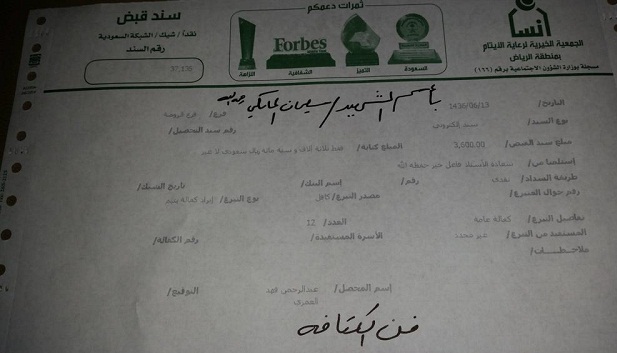 ثمرات دعمكم
Forbes
السعودة
التميز
الشفافية
النزاهة
إنسان
الجمعية الخيرية لرعاية الأيتام
بمنطقة الرياض
مسجلة بوزارة الشؤون الاجتماعية برقم (١٦٦)
سند قبض
نقداً / شيك / الشبكة السعودية
رقم السند
37,136
بأسم الشهيد/سليمان المالكي
التاريخ/ 1436/06/13 فرع/ فرع الروضة
نوع السند/ سند إلكتروني رقم سند التحصيل/
مبلغ سند القبض/ 3,600.00 المبلغ كتابة/ فقط ثلاثة آلاف و ستة مائة ريال سعودي لا غير
إستلمنا من/ سعادة الأستاذ فاعل خير حفظه الله
طريقة السداد/ نقدي رقم/ إسم البنك/ تاريخ الشيك/
رقم جوال المتبرع/ مصدر التبرع/ كافل نوع التبرع/ إيراد كفالة يتيم
تفاصيل التبرع/ كفالة عامة العدد/ 12
المستفيد من التبرع/ غير محدد الأسرة المستفيدة/ رقم الكفالة/
ملاحظات/
إسم المحصل/ عبدالرحمن فهد العمري التوقيع/